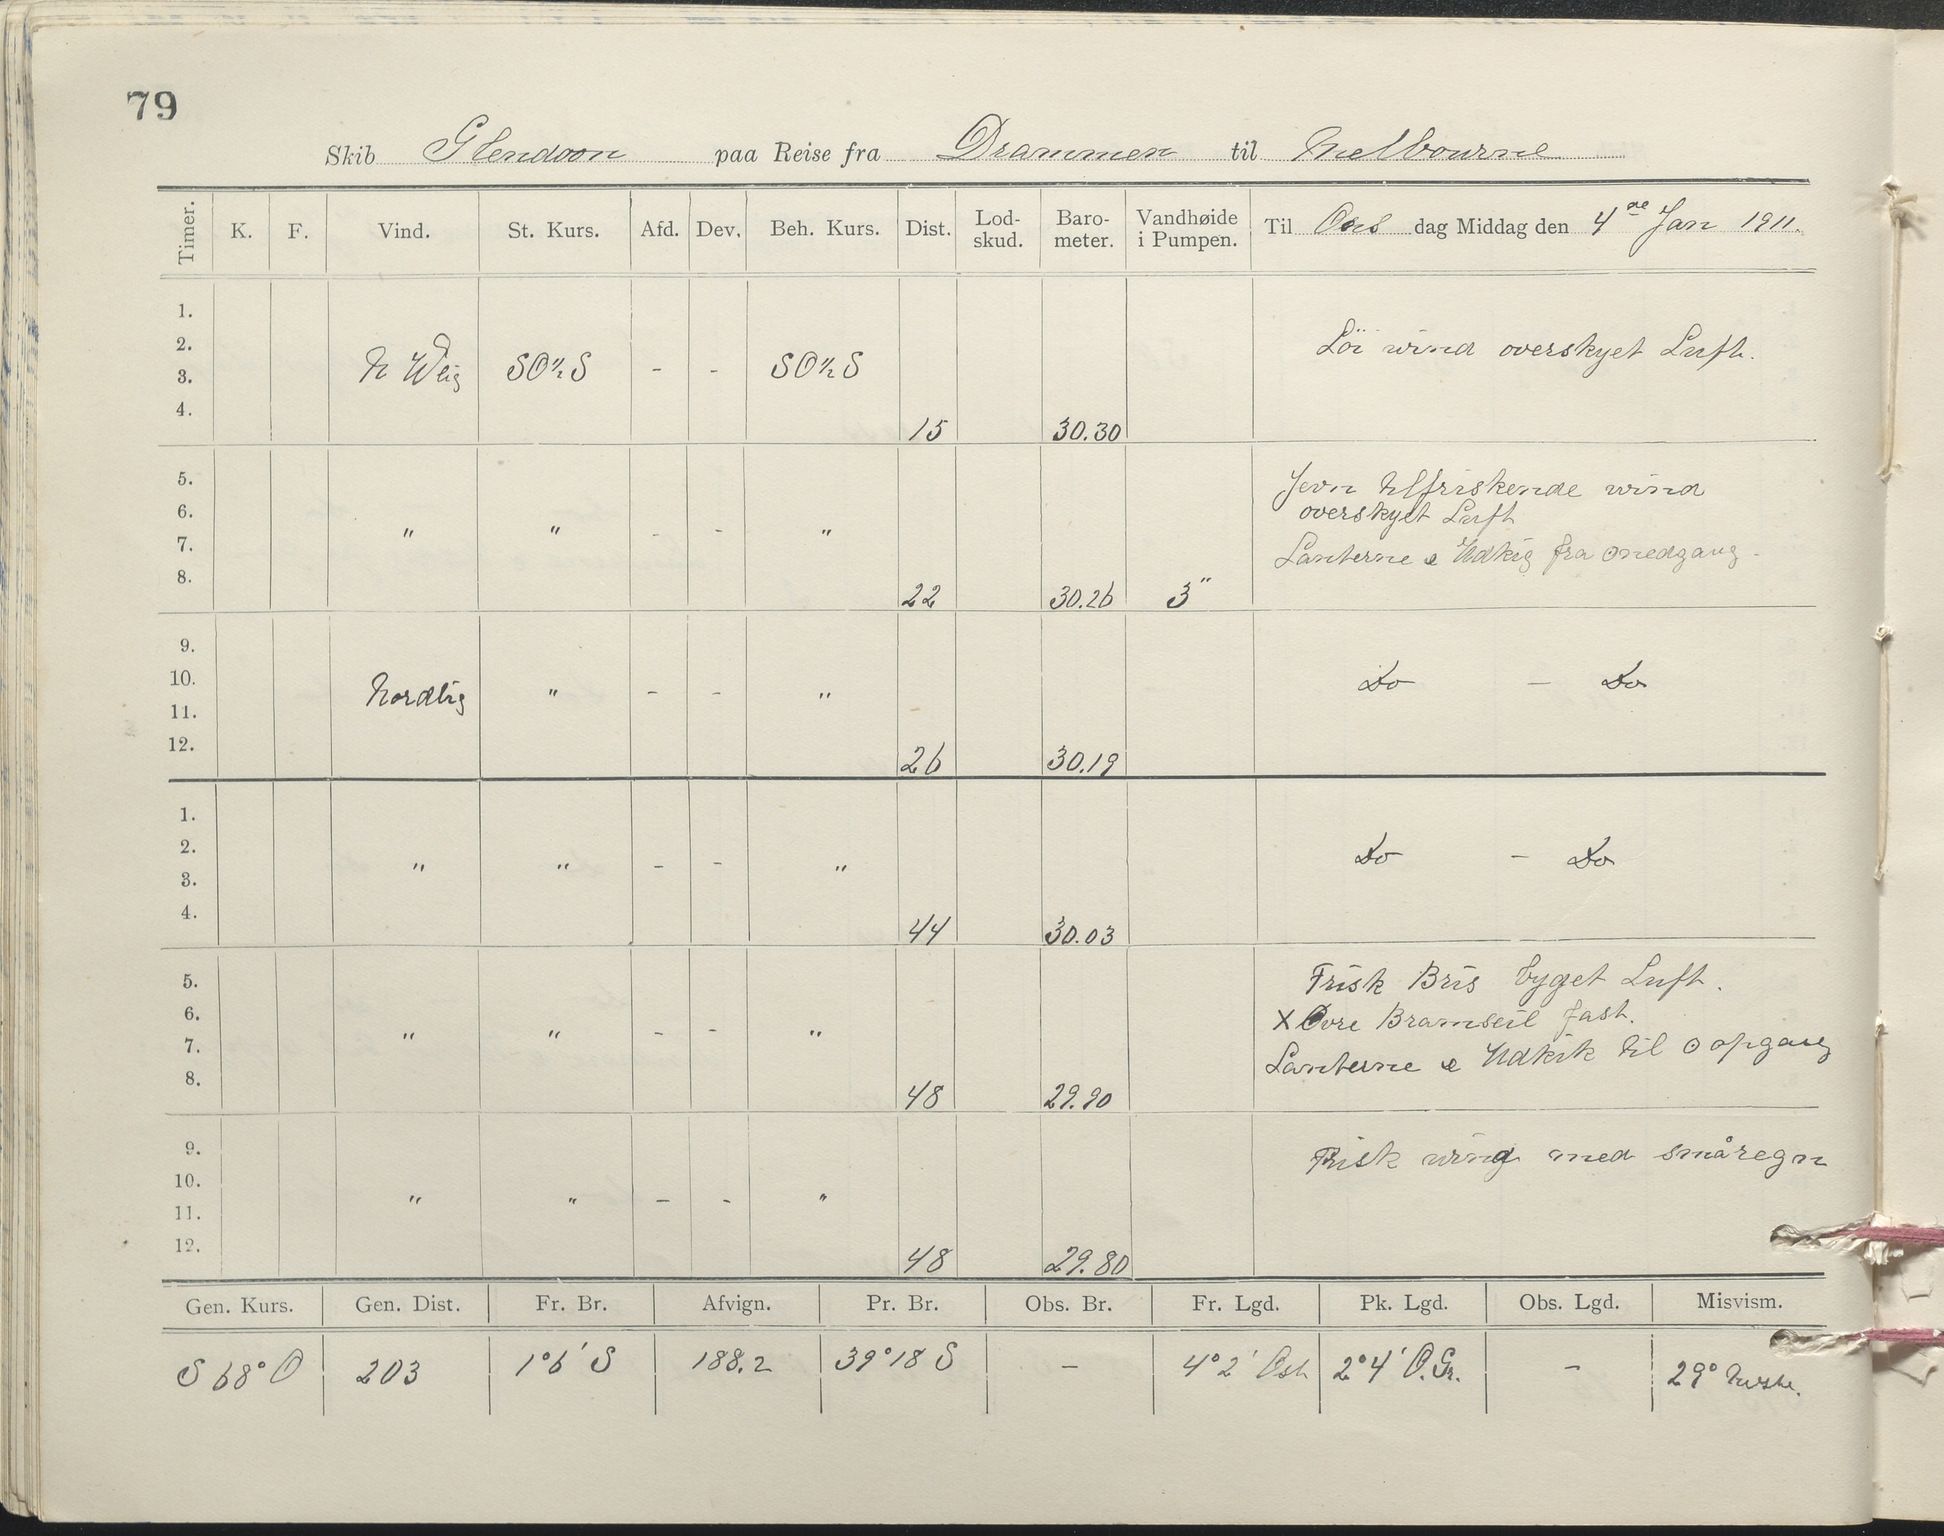 79
Skib Glendoon paa Reise fra Drammen til Melbourne
Timer. K. F. Vind. St. Kurs. Afd. Dev. Beh. Kurs. Dist. Lod-skud. Baro-meter. Vandhøide i Pumpen. Til Ons dag Middag den 4 de Jan 1911.
1.
2. Löi wind overskyet Luft.
3. N Wlig SO½S - - SO½S
4. 15 30.30
5. Jevn tilfriskende wind
6. overskyet Luft
7. " " - - " Lanterne & Udkig fra onedgang -
8. 22 30.26 3"
9.
10. Nordlig " - - " Do - Do
11.
12. 26 30.19
1.
2. " " - - " Do - Do
3.
4. 44 30.03
5. Frisk Bris byget Luft.
6. X Øvre Bramseil fast.
7. " " - - " Lanterne & Udkik til o opgang
8. 48 29.90
9. Frisk wind med småregn
10. " " - - "
11.
12. 48 29.80
Gen. Kurs. Gen. Dist. Fr. Br. Afvign. Pr. Br. Obs. Br. Fr. Lgd. Pk. Lgd. Obs. Lgd. Misvism.
S 68° O 203 1°6' S 188.2 39°18 S - 4°2' Ost 2°4' O.Gr. - 29°